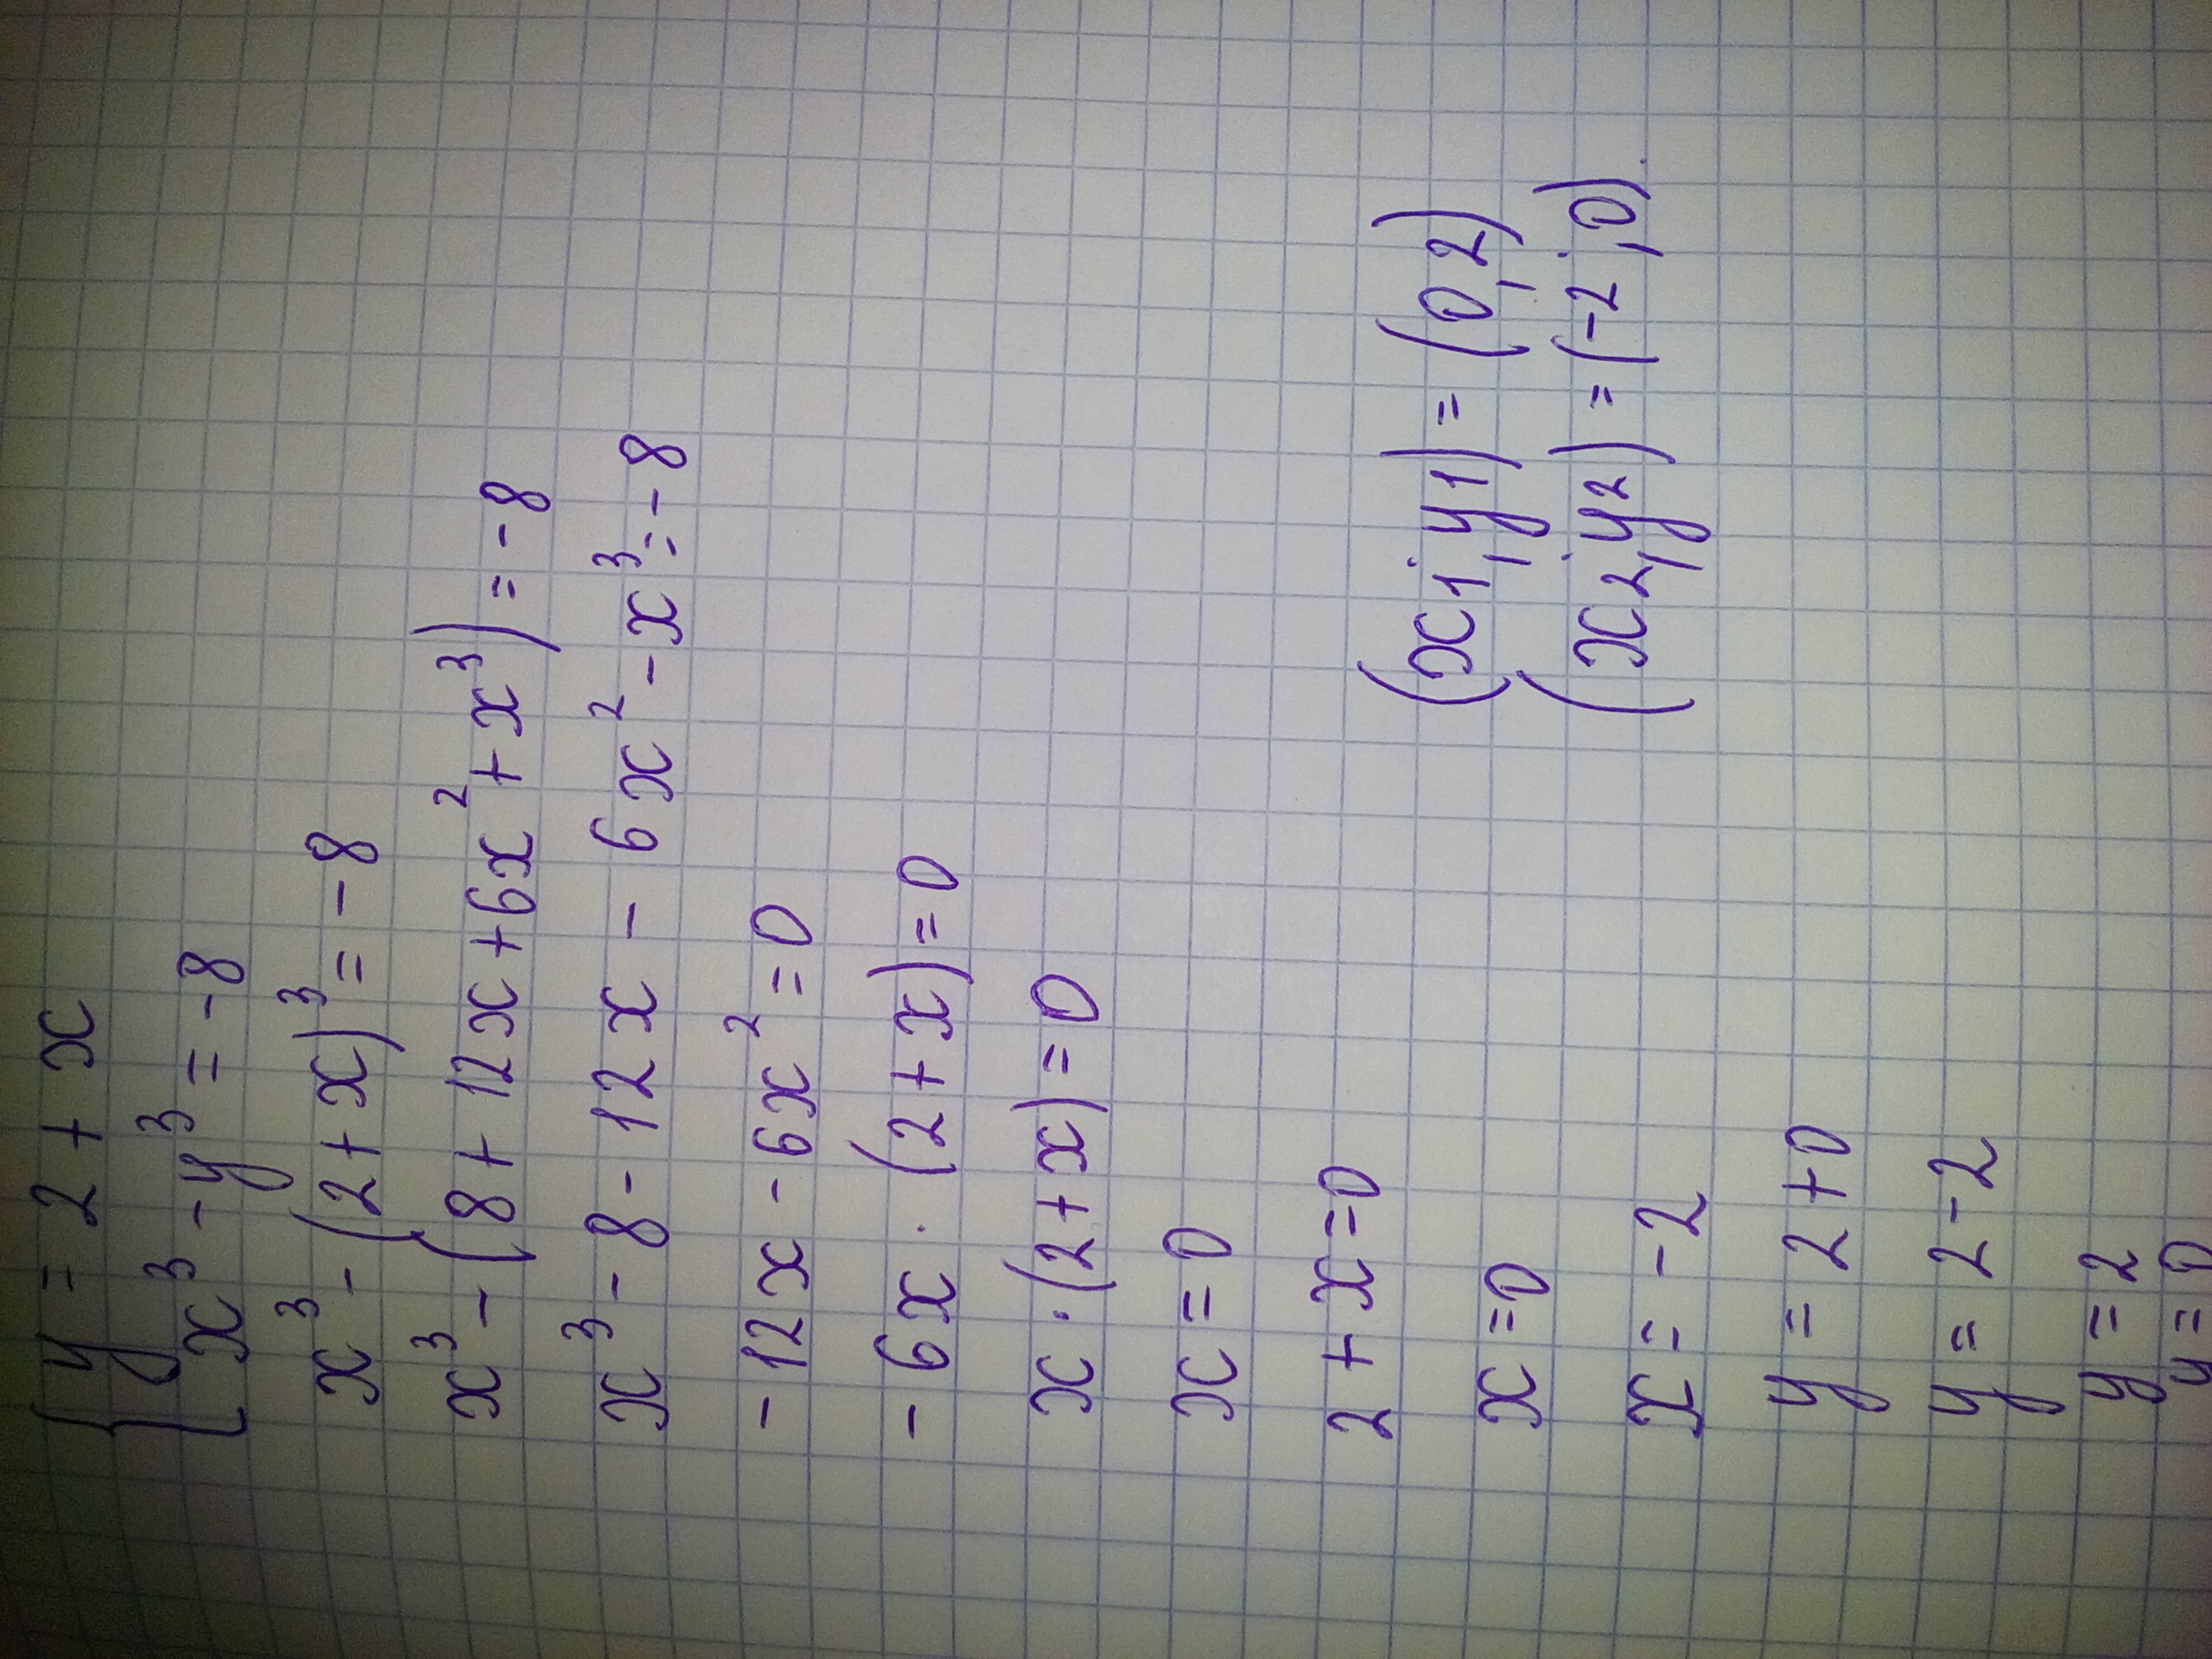 {y = 2 + x
x³ - y³ = -8
x³ - (2 + x)³ = -8
x³ - (8 + 12x + 6x² + x³) = -8
x³ - 8 - 12x - 6x² - x³ = -8
-12x - 6x² = 0
-6x · (2 + x) = 0
x · (2 + x) = 0
x = 0
2 + x = 0
x = 0
x = -2
y = 2 + 0
y = 2 - 2
y = 2
y = 0
(x1; y1) = (0, 2)
(x2; y2) = (-2; 0).